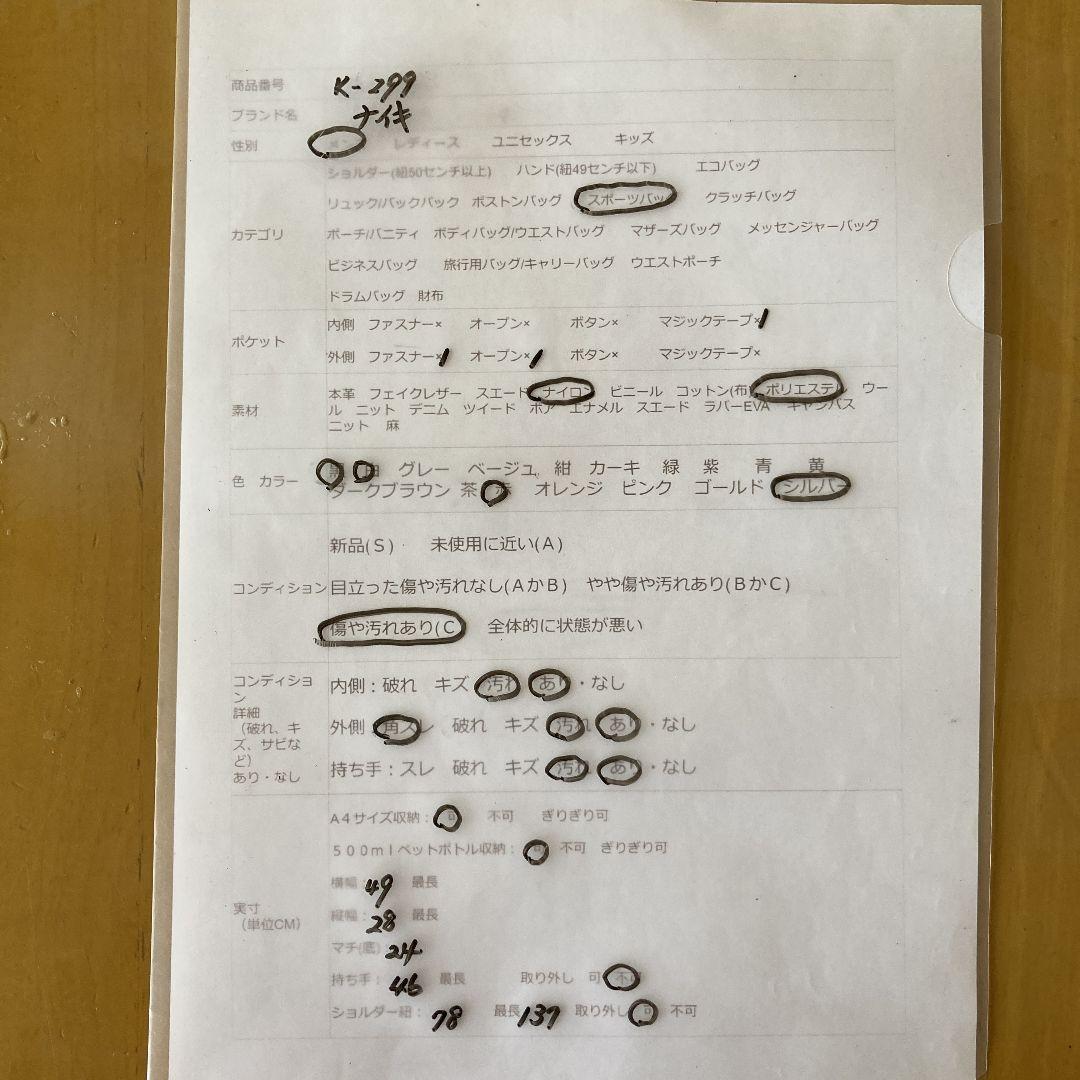 商品番号 K-299
ブランド名 ナイキ
性別 メンズ レディース ユニセックス キッズ
ショルダー(紐50センチ以上) ハンド(紐49センチ以下) エコバッグ
リュック/バックパック ボストンバッグ スポーツバッ クラッチバッグ
カテゴリ ポーチ/バニティ ボディバッグ/ウエストバッグ マザーズバッグ メッセンジャーバッグ
ビジネスバッグ 旅行用バッグ/キャリーバッグ ウエストポーチ
ドラムバッグ 財布
ポケット
内側 ファスナー× オープン× ボタン× マジックテープ×1
外側 ファスナー×1 オープン×1 ボタン× マジックテープ×
素材
本革 フェイクレザー スエード ナイロン ビニール コットン(布) ポリエステル ウー
ル ニット デニム ツイード ボア エナメル スエード ラバーEVA キャンバス
ニット 麻
色 カラー
黒 白 グレー ベージュ 紺 カーキ 緑 紫 青 黄
ダークブラウン 茶 赤 オレンジ ピンク ゴールド シルバー
新品(S) 未使用に近い(A)
コンディション 目立った傷や汚れなし(AかB) やや傷や汚れあり(BかC)
傷や汚れあり(C 全体的に状態が悪い
コンディショ
ン
詳細
(破れ、キ
ズ、サビな
ど)
あり・なし
内側:破れ キズ 汚れ あり・なし
外側 角スレ 破れ キズ 汚れ あり・なし
持ち手:スレ 破れ キズ 汚れ あり・なし
実寸
(単位CM)
A4サイズ収納:可 不可 ぎりぎり可
500mlペットボトル収納:可 不可 ぎりぎり可
横幅:49 最長
縦幅:28 最長
マチ(底)24
持ち手:46 最長 取り外し 可 不可
ショルダー紐:78 最長137 取り外し 可 不可